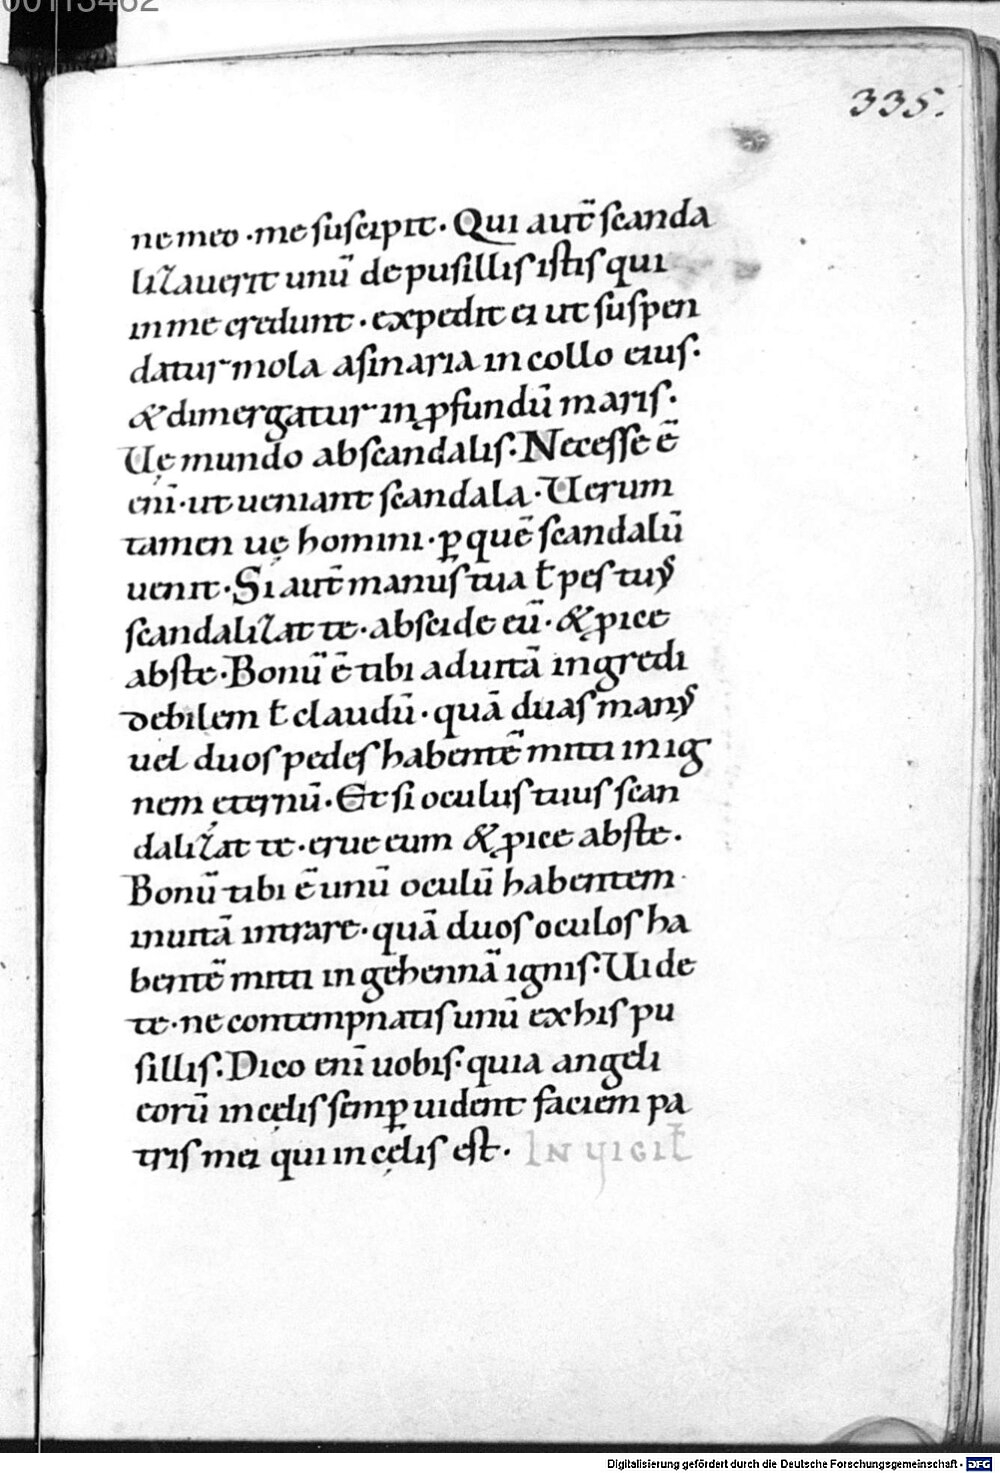 00113462
335.
ne meo · me ſuſcipit · Qui aut̄ ſcanda
lizauerit unū de puſilliſ iſtiſ qui
in me credunt · expedit ei ut ſuſpen
datur mola aſinaria in collo eiuſ ·
& dimergatur in ꝓfundū mariſ ·
Uę mundo ab ſcandaliſ · Neceſſe ē
enī · ut ueniant ſcandala · Uerum
tamen uę homini · ꝑ quē ſcandalū
uenit · Si aut̄ manuſ tua ł peſ tuꝰ
ſcandalizat te · abſcide eū · & ꝓice
abſ te · Bonū ē tibi ad uitā ingredi
debilem ł claudū · quā duaſ manꝰ
uel duoſ pedeſ habentē mitti in ig
nem ęternū · Et ſi oculuſ tuus ſcan
dalizat te · erue eum & ꝓice abſ te ·
Bonū tibi ē unū oculū habentem ·
in uitā intrare · quā duoſ oculoſ ha
bentē mitti in gehennā igniſ · Uide
te · ne contempnatiſ unū ex hiſ pu
ſilliſ · Dico enī uobiſ · quia angeli
eorū in cęliſ ſemꝑ uident faciem pa
triſ mei qui in cęliſ eſt · IN UIGIŁ
Digitalisierung gefördert durch die Deutsche Forschungsgemeinschaft - DFG